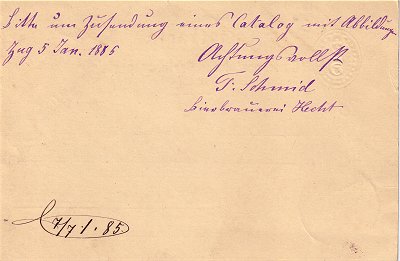 Bitte um Zusendung eines Catalog mit Abbildungen
Zug 5 Jan. 1885
Achtungsvollst
T. Schmid
Bierbrauerei Hecht
7/7.1. 85